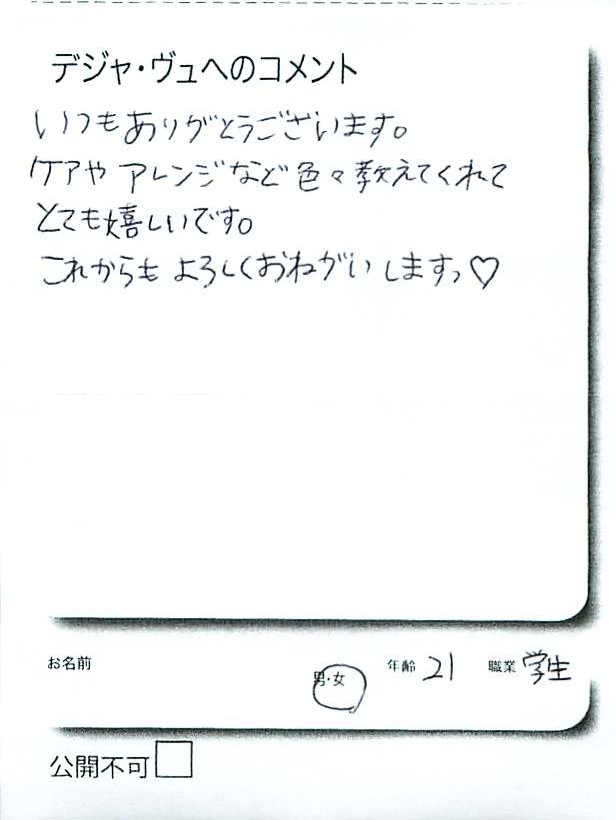 デジャ・ヴュへのコメント
いつもありがとうございます。
ケアや アレンジなど 色々 教えてくれて
とても嬉しいです。
これからも よろしくおねがい しますっ♡
お名前 男・女 年齢 21 職業 学生
公開不可